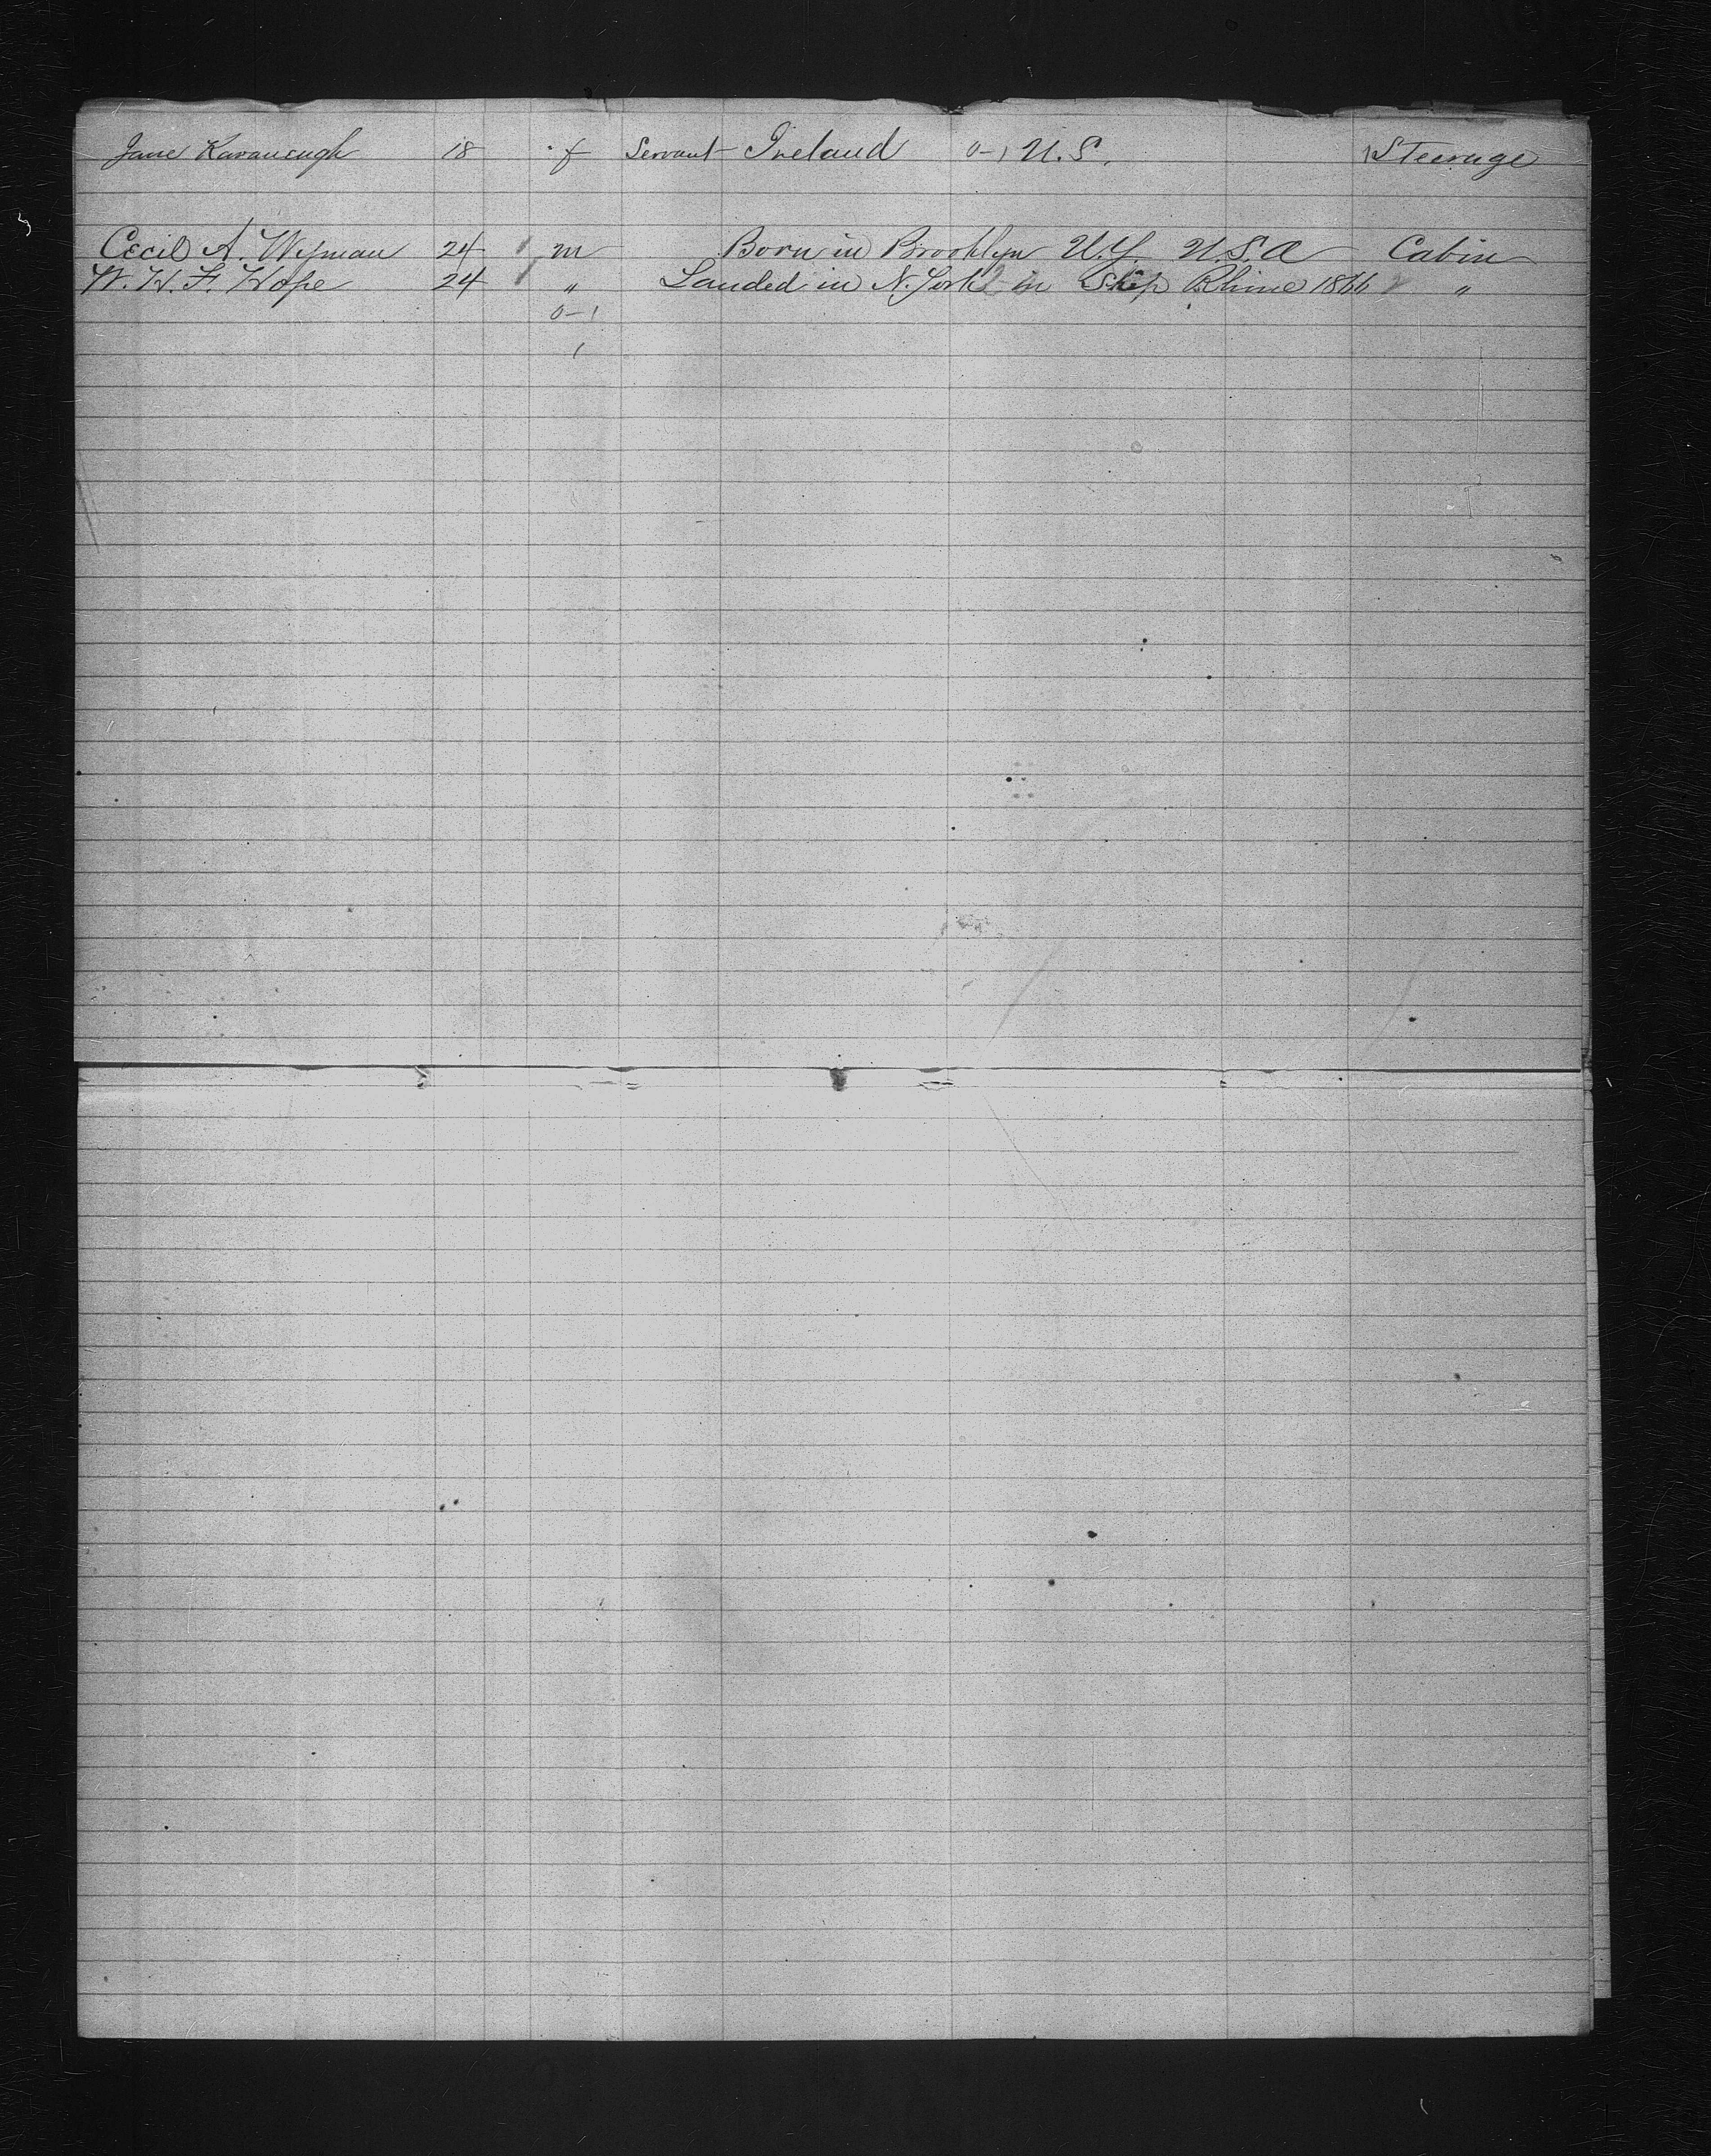 Jane Kavanaugh 18 f Servant Ireland 0-1 U.S. 1 Steerage
Cecil A. Wyman 24 1 m Born in Brooklyn N.Y. U.S.A Cabin
W. H. F. Hope 24 1 " Landed in N. York in Ship Rhine 1866 "
0-1
1